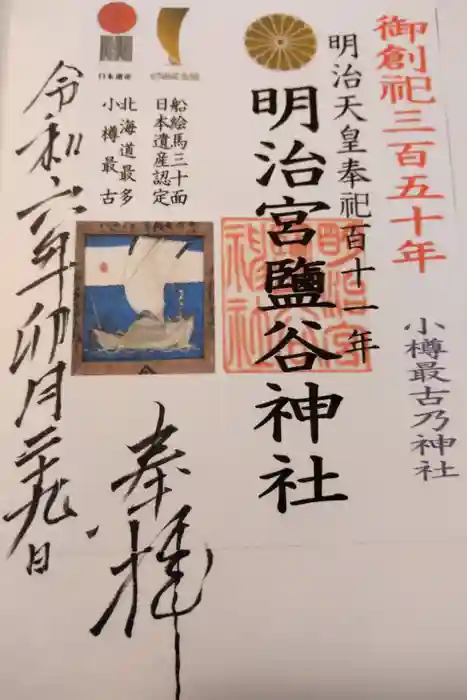 御創祀三百五十年
小樽最古乃神社
明治天皇奉祀百十一年
明治宮鹽谷神社
船絵馬三十面
日本遺産認定
北海道最多
小樽最古
日本遺産
奉拝
令和六年卯月二十九日